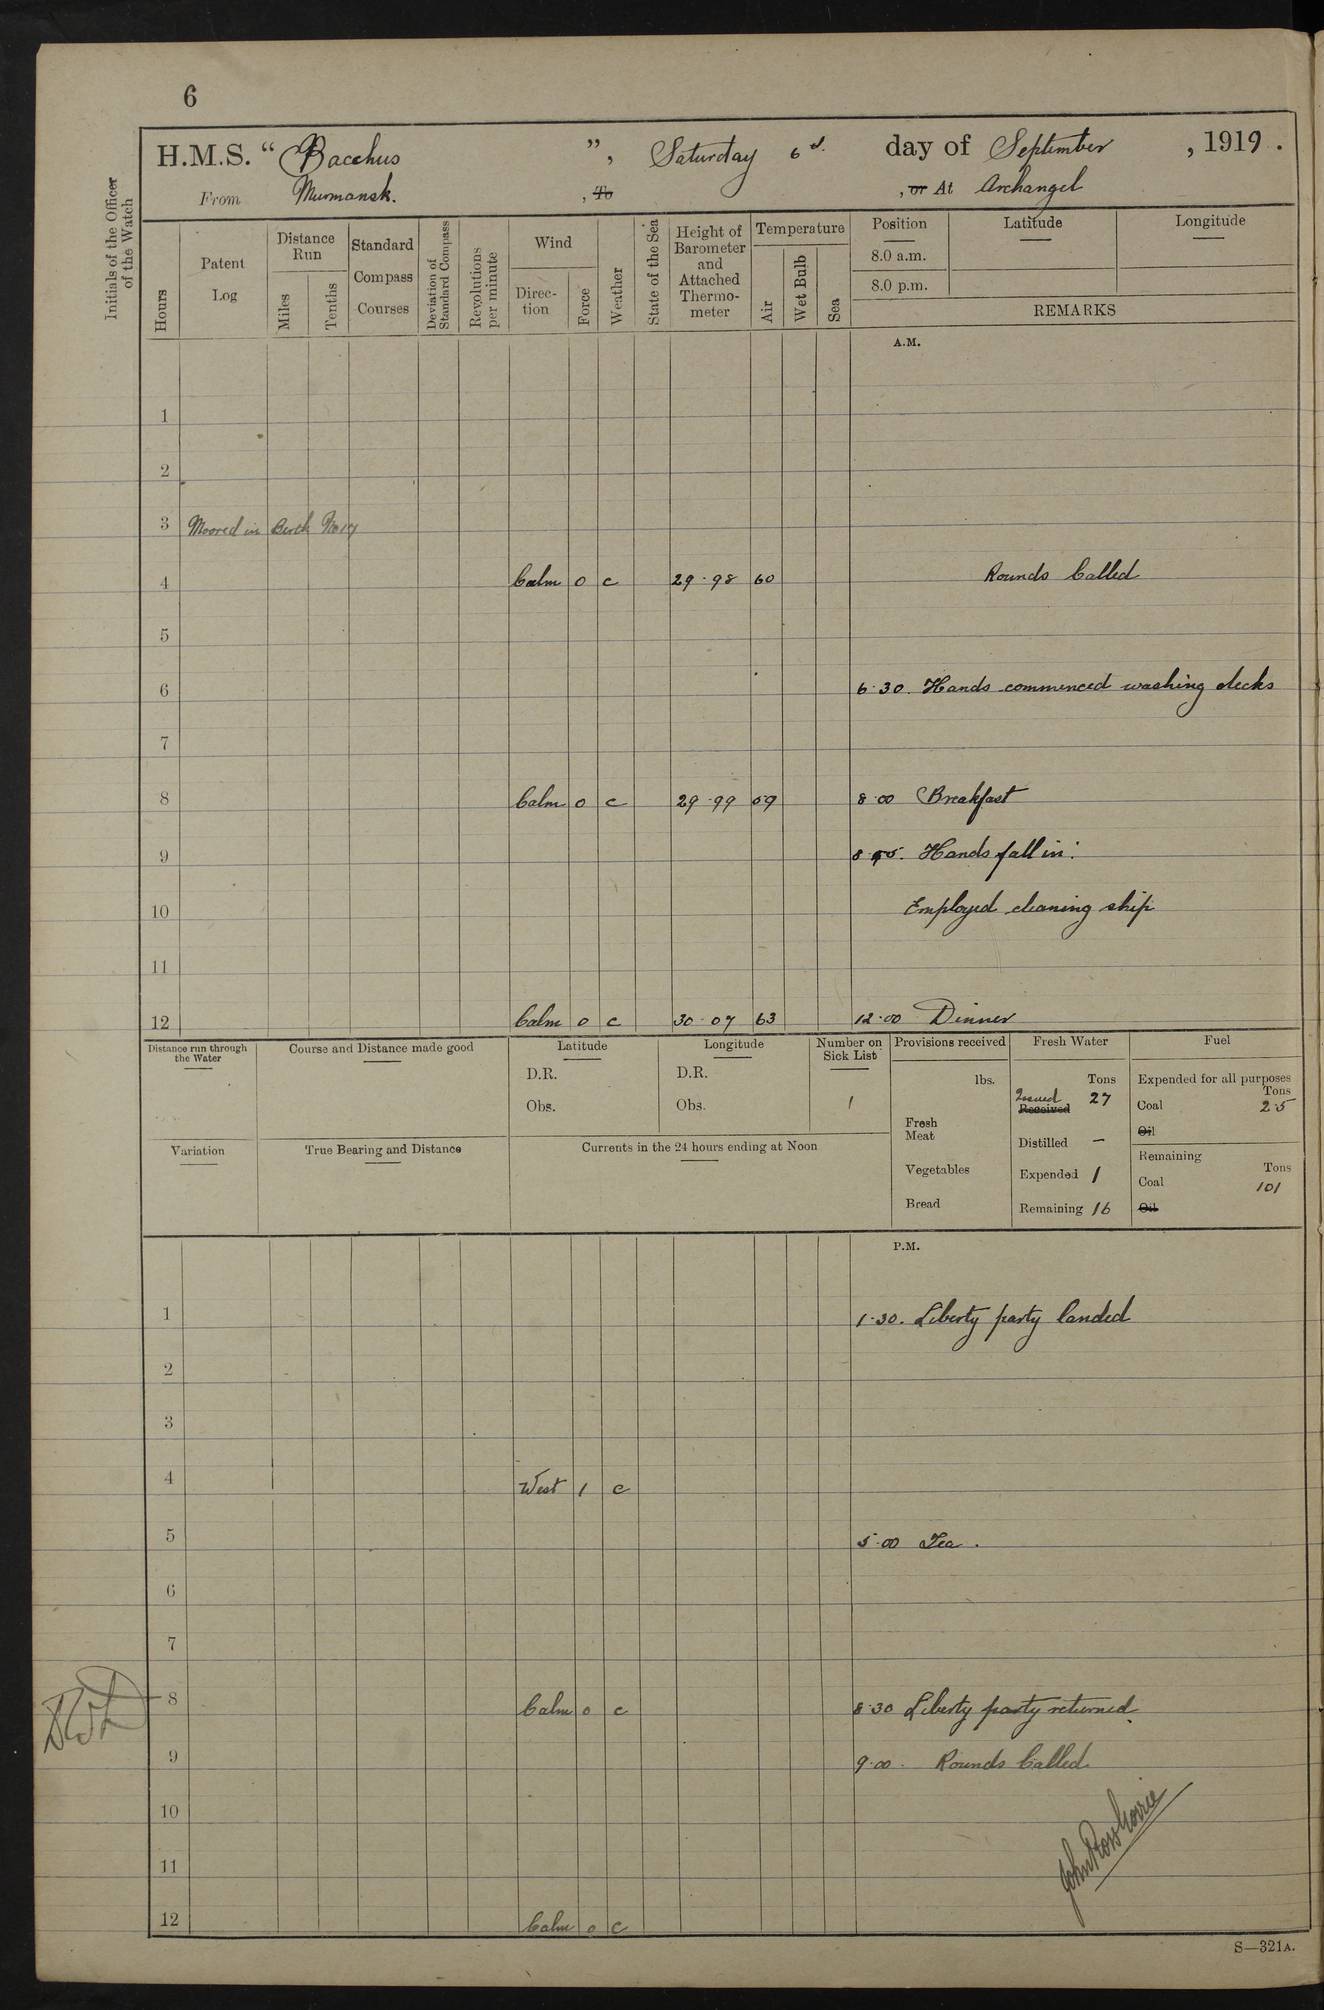 6
H.M.S. “ Bacchus ”, Saturday 6th day of September, 1919.
From Murmansk. , To , or At Archangel
Initials of the Officer of the Watch
Hours
Patent Log
Distance Run
Miles
Tenths
Standard Compass Courses
Deviation of Standard Compass
Revolutions per minute
Wind
Direc-tion
Force
Weather
State of the Sea
Height of Barometer and Attached Thermo-meter
Temperature
Air
Wet Bulb
Sea
Position
Latitude
Longitude
8.0 a.m.
8.0 p.m.
REMARKS
A.M.
1
2
3 Moored in Berth No 17
4 Calm 0 c 29·98 60 Rounds Called
5
6 6·30. Hands commenced washing decks
7
8 Calm 0 c 29·99 59 8·00 Breakfast
9 Hands fall in.
10 Employed cleaning ship
11
12 Calm 0 c 30·07 63 12·00 Dinner
Distance run through the Water
Course and Distance made good
Latitude
D.R.
Obs.
Longitude
D.R.
Obs.
Number on Sick List
1
Provisions received
lbs.
Fresh Meat
Vegetables
Bread
Fresh Water
Tons
Issued 27
Received
Distilled —
Expended 1
Remaining 16
Fuel
Expended for all purposes
Tons
Coal 2·5
Oil
Remaining
Tons
Coal 101
Oil
Variation
True Bearing and Distance
Currents in the 24 hours ending at Noon
P.M.
1 1·30. Liberty party landed
2
3
4 West 1 c
5 5·00 Tea.
6
7
8 Calm 0 c 8·30 Liberty party returned.
9 9·00. Rounds Called.
10
11
12 Calm 0 c
S—321A.